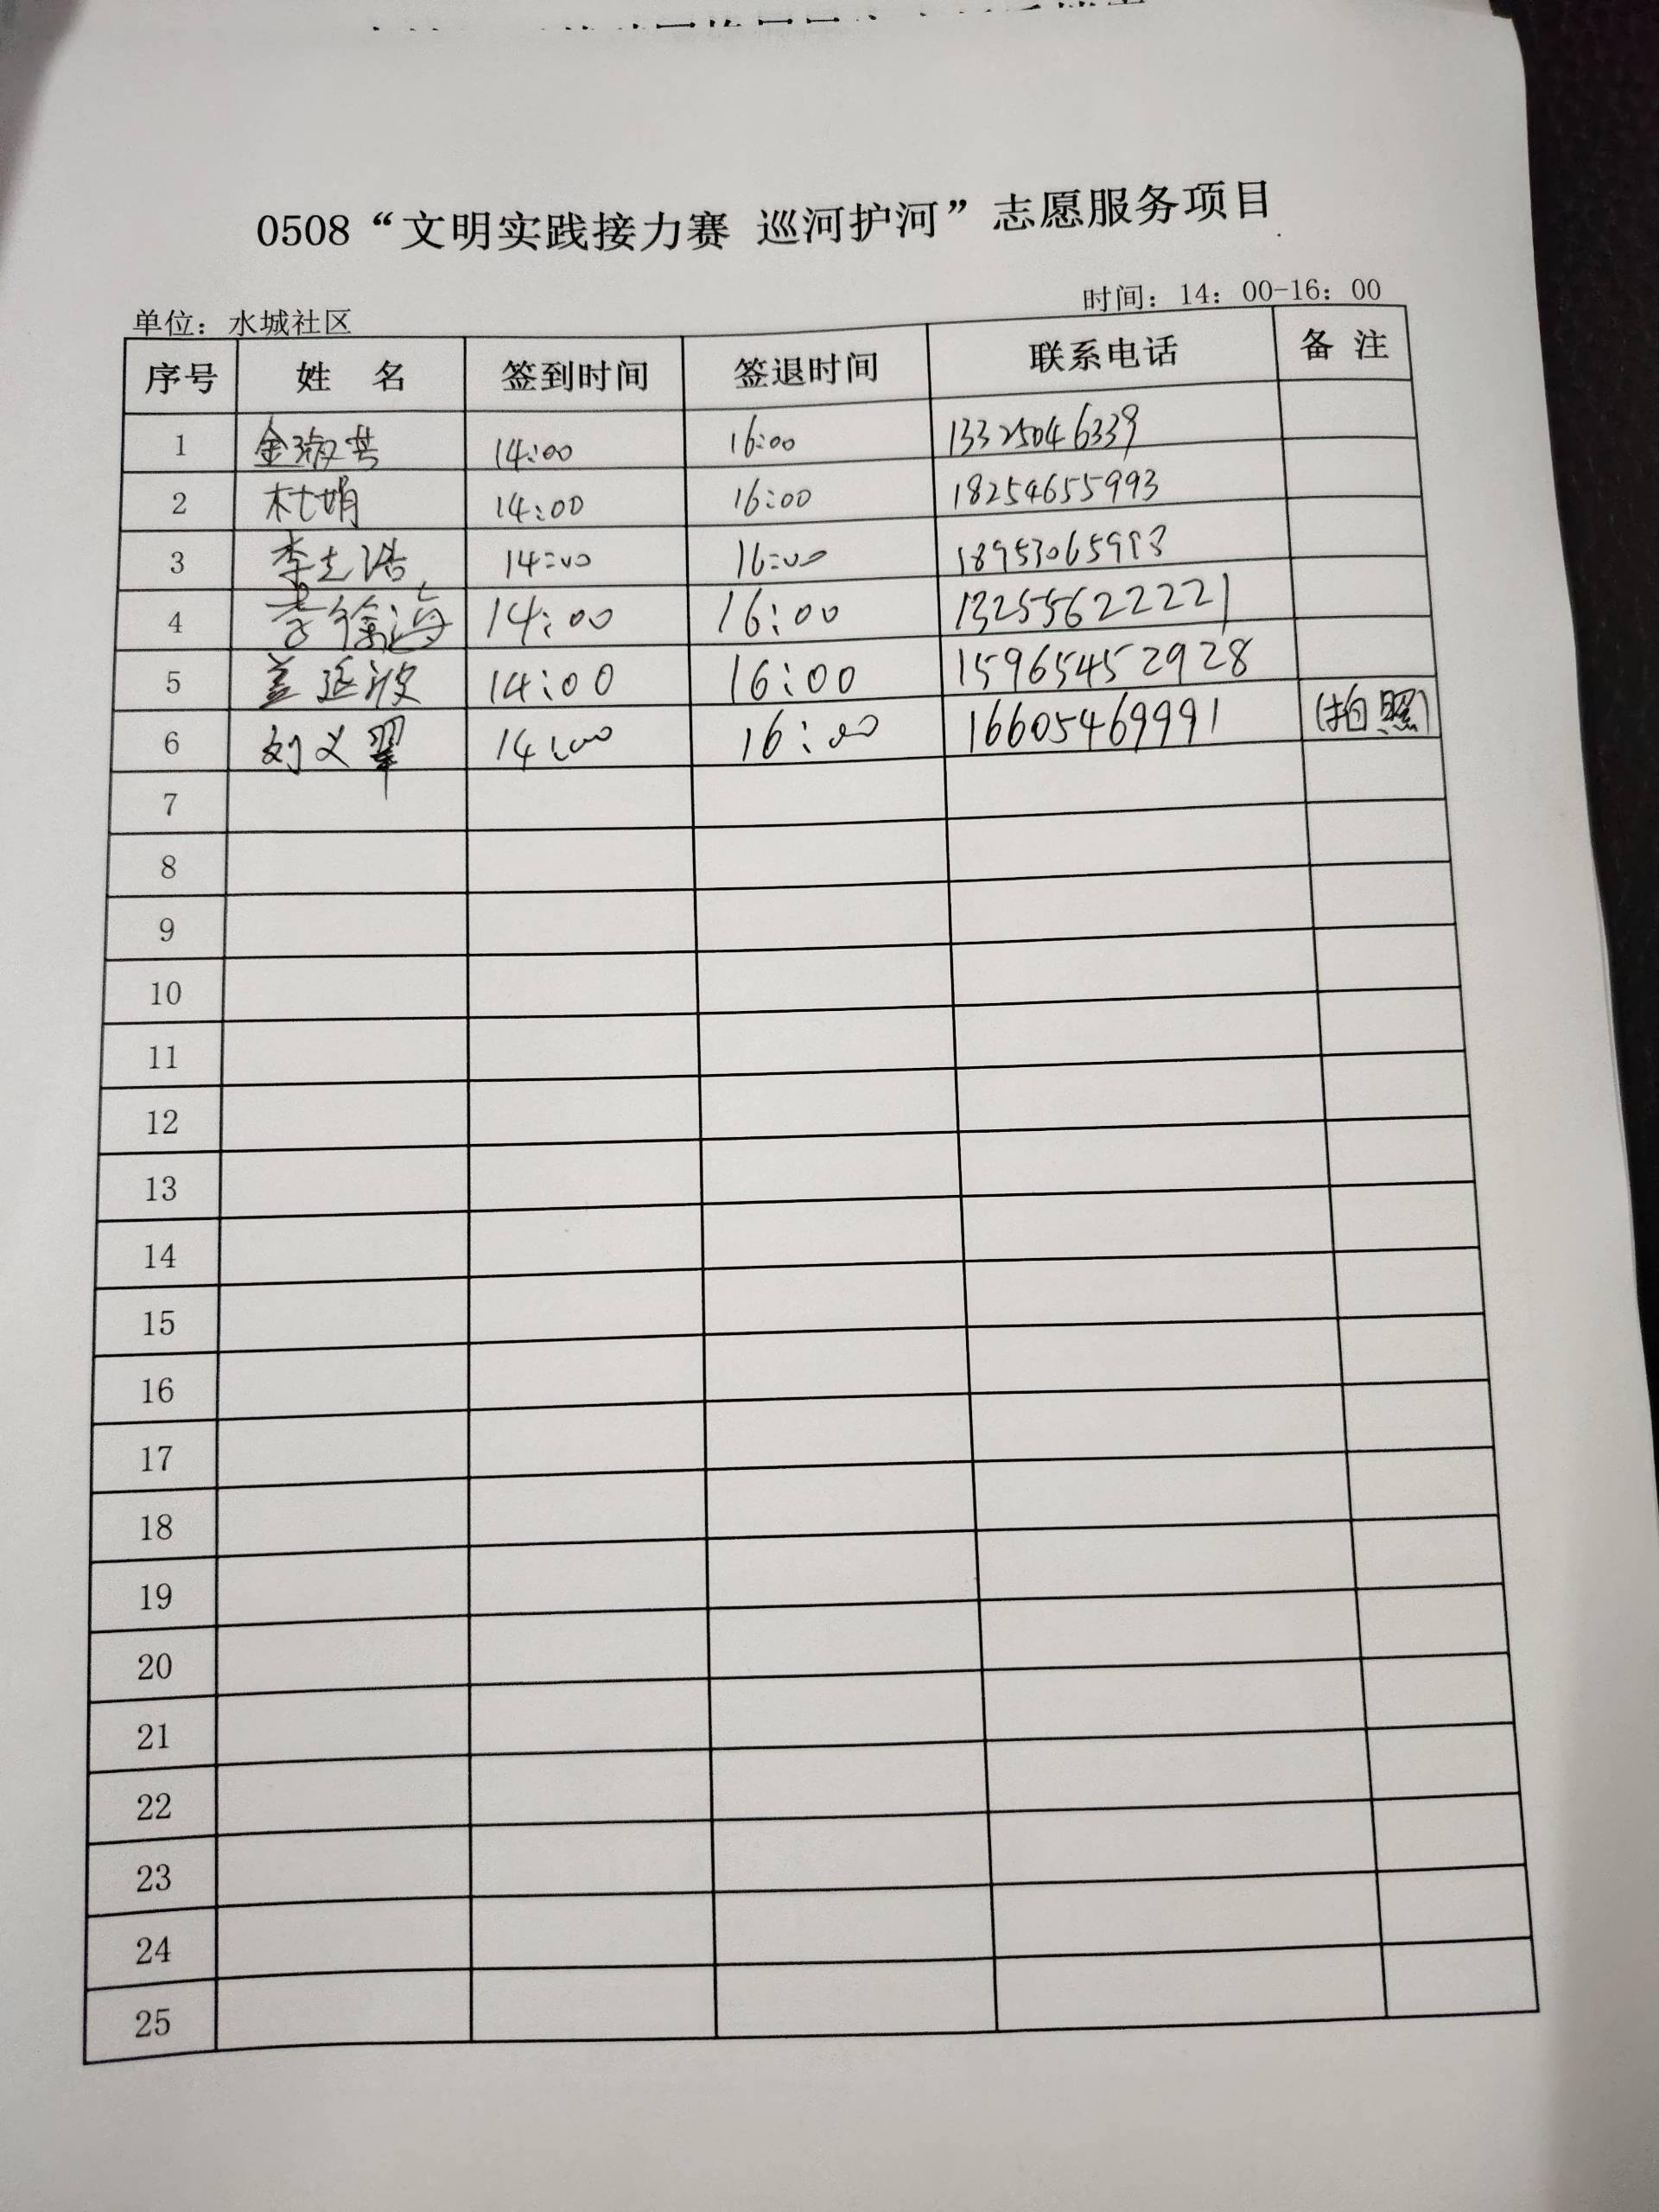 0508“文明实践接力赛 巡河护河”志愿服务项目
单位：水城社区 时间：14：00-16：00
序号 姓 名 签到时间 签退时间 联系电话 备 注
1 金淑芸 14:00 16:00 13325046339
2 杜娟 14:00 16:00 18254655993
3 李志浩 14:00 16:00 18953065993
4 李徐海 14:00 16:00 13255622221
5 盖延波 14:00 16:00 15965452928
6 刘义翠 14:00 16:00 16605469991 (拍照)
7
8
9
10
11
12
13
14
15
16
17
18
19
20
21
22
23
24
25